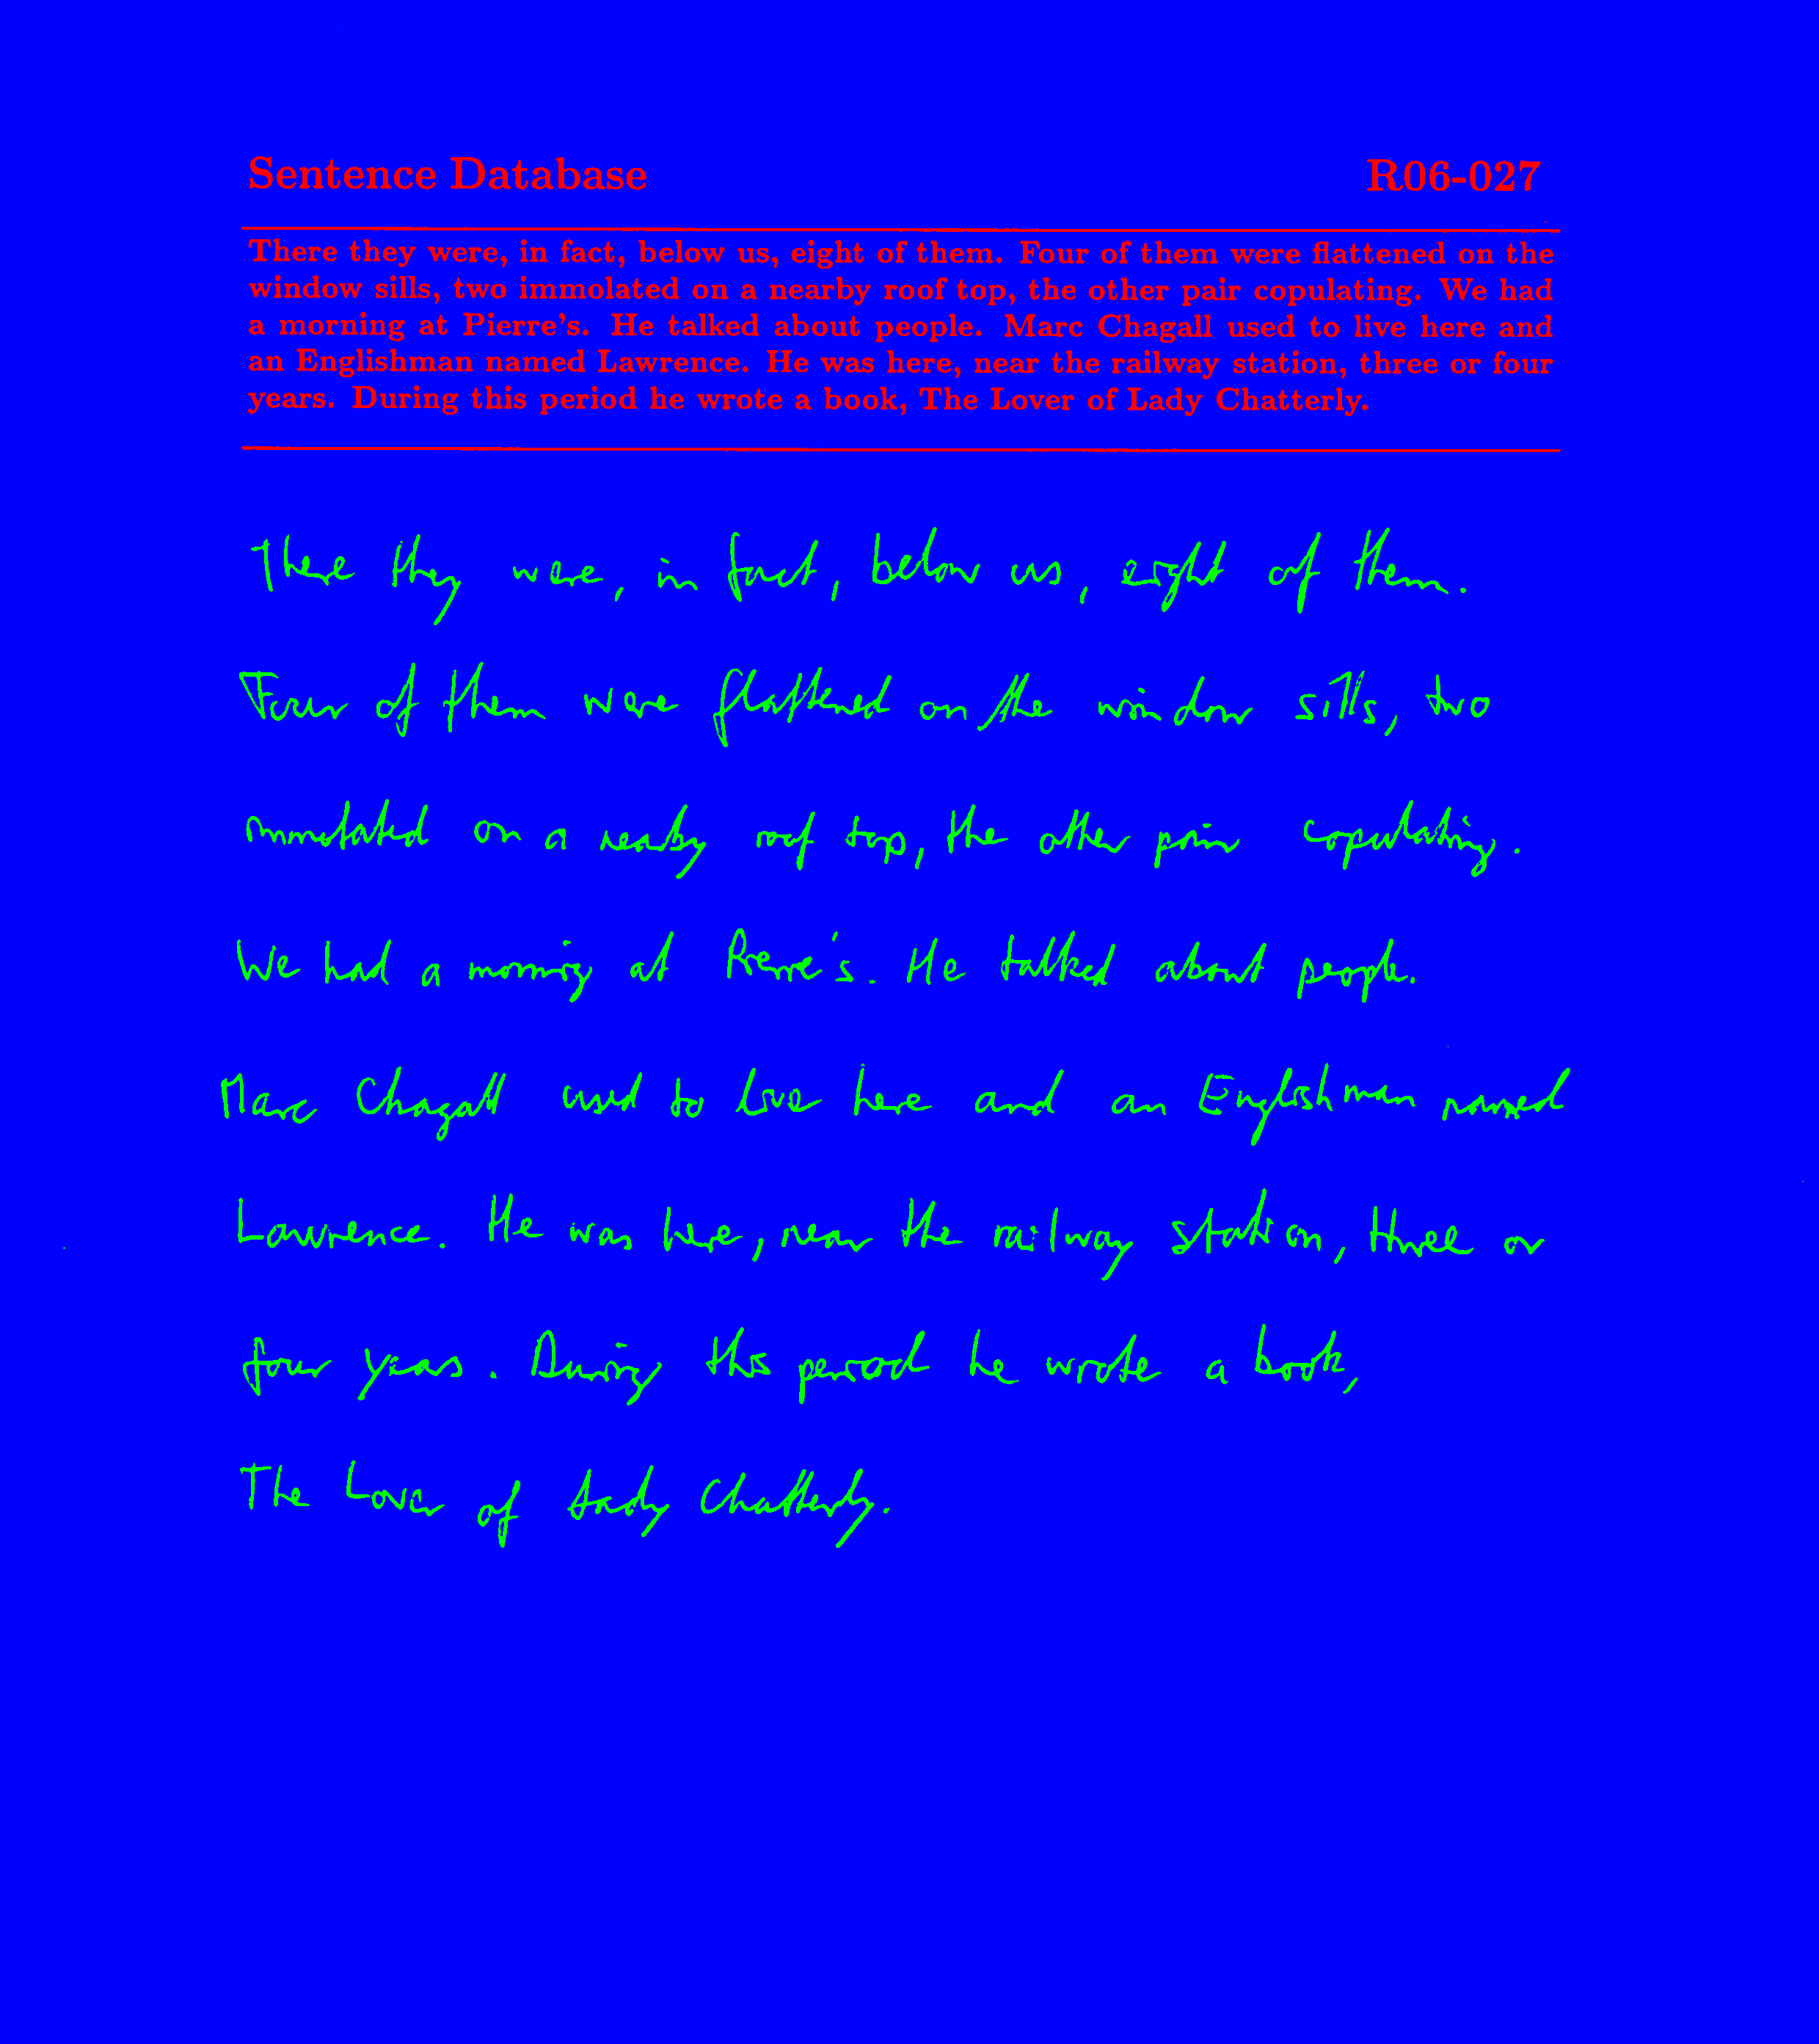 Sentence Database R06-027
There they were, in fact, below us, eight of them. Four of them were flattened on the
window sills, two immolated on a nearby roof top, the other pair copulating. We had
a morning at Pierre's. He talked about people. Marc Chagall used to live here and
an Englishman named Lawrence. He was here, near the railway station, three or four
years. During this period he wrote a book, The Lover of Lady Chatterly.
There they were, in fact, below us, eight of them.
Four of them were flattened on the window sills, two
immolated on a nearby roof top, the other pair copulating.
We had a morning at Pierre's. He talked about people.
Marc Chagall used to live here and an Englishman named
Lawrence. He was here, near the railway station, three or
four years. During this period he wrote a book,
The Lover of Lady Chatterly.